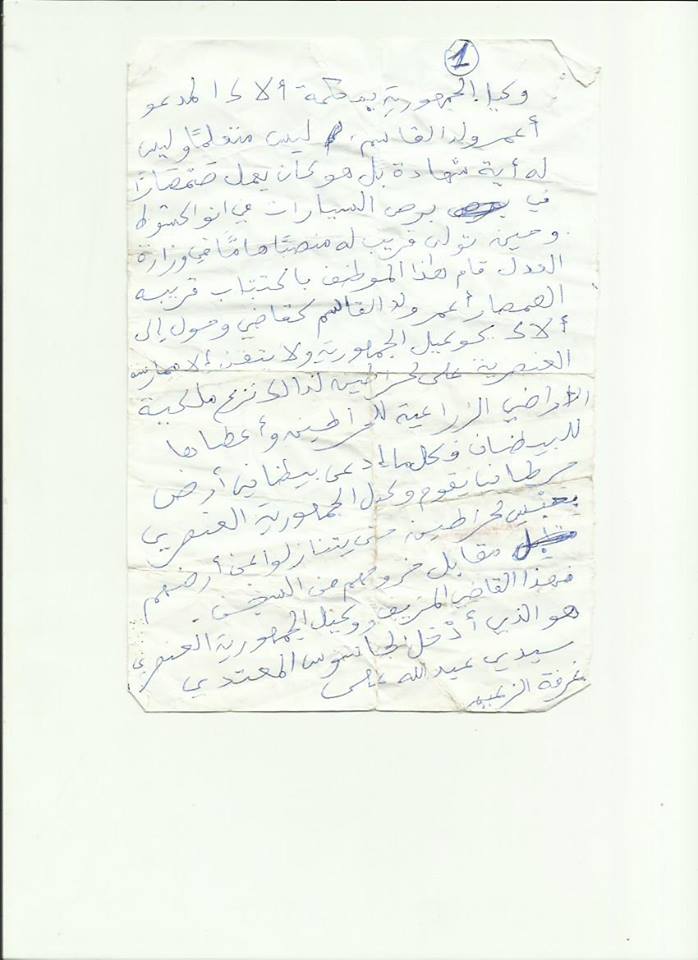 1
وكيل الجمهورية بمحكمة ألاك المدعو
أعمر ولد القاسم، ليس متعلما وليس
له أية شهادة بل هو كان يعمل صمصارا
في برص السيارات في انواكشوط
وحين تولى قريب له منصبا هاما في وزارة
العدل قام هذا الموظف باكتتاب قريبه
الصمصار أعمر ولد القاسم كقاضي وحول إلى
ألاك كوكيل الجمهورية ولا يتقن إلا ممارسة
العنصرية على لحراطين لذالك نزع ملكية
الأراضي الزراعية للحراطين وأعطاها
للبيضان وكلما إدعى بيظاني أرض
حرطاني يقوم وكيل الجمهورية العنصري
لحراطين حتى يتنازلوا عن أرضهم
مقابل خروجهم من السجن
فهذا القاضي المزيف ووكيل الجمهورية العنصري
هو الذي أدخل لجاسوس المعتدي
سيدي عبد الله على
غرفة الزعيم